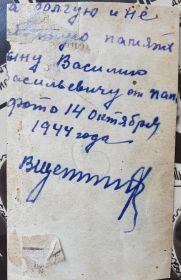 а долгую и не
память
ыну Василию
асильевичу от пап
фото 14 октября
1944 года